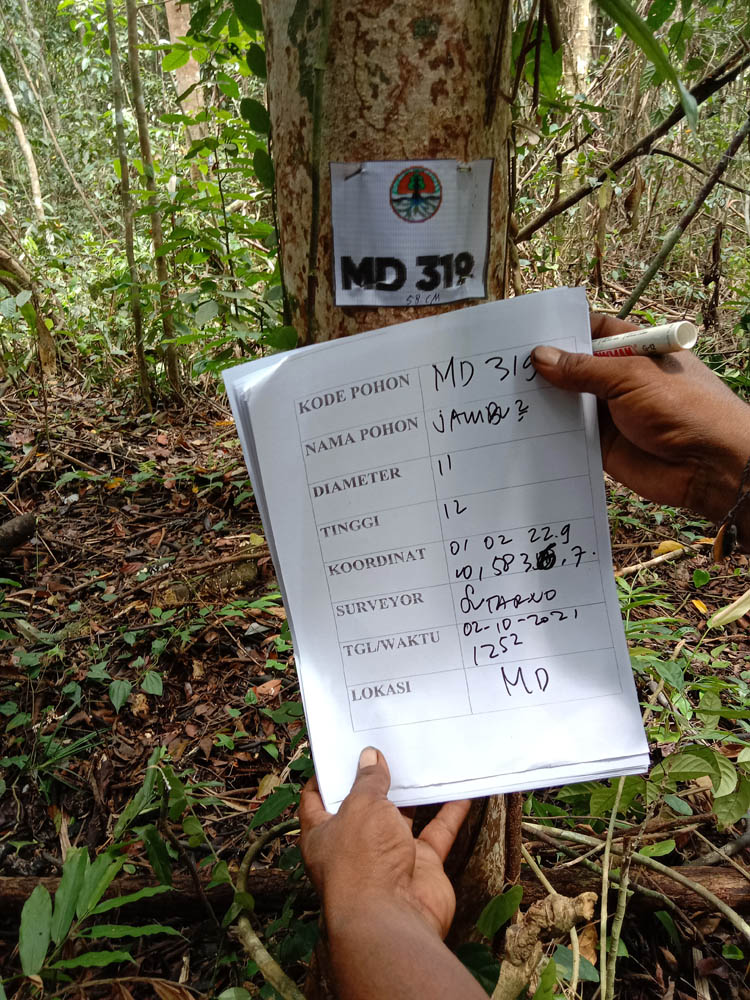 MD 319
58 CM
KODE POHON MD 319
NAMA POHON JAMBU2
DIAMETER 11
TINGGI 12
KOORDINAT 01 02 22.9
10, 583 .7.
SURVEYOR SUTARNO
TGL/WAKTU 02-10-2021
1252
LOKASI MD